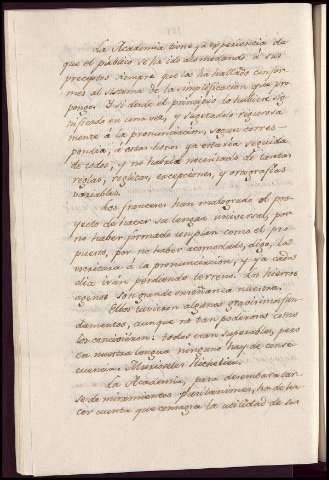 La Academia tiene ya experiencia de
que el publico se ha ido acomodando á sus
preceptos siempre que los ha hallado confor-
mes al sistema de la simplificacion que pro-
pongo. Y si desde el principio lo hubiera sim-
plificado en una vez, y sugetadolo rigurosa-
mente á la pronunciacion, segun corres-
pondia; á estas horas ya estaria seguida
de todos; y no habria necesitado de tantas
reglas, reglitas, excepciones, y ortografias
variables.
Los franceses han malogrado el pro-
yecto de hacer su lengua universal, por
no haber formado un plan como el pro-
puesto, por no haber acomodado, digo, las
escritura á la pronunciacion; y ya cada
dia iran perdiendo terreno. Los hierros
agenos son grande enseñanza nuestra.
Ellos tuvieron algunos gravisimos fun-
damentos, aunque no tan poderosos como
los concibieron: todos eran superables, pero
en nuestra lengua ninguno hay de conse-
cuencia.
La Academia, para desembarazar-
se de miramientos
cer cuenta que consagra la utilidad de sus